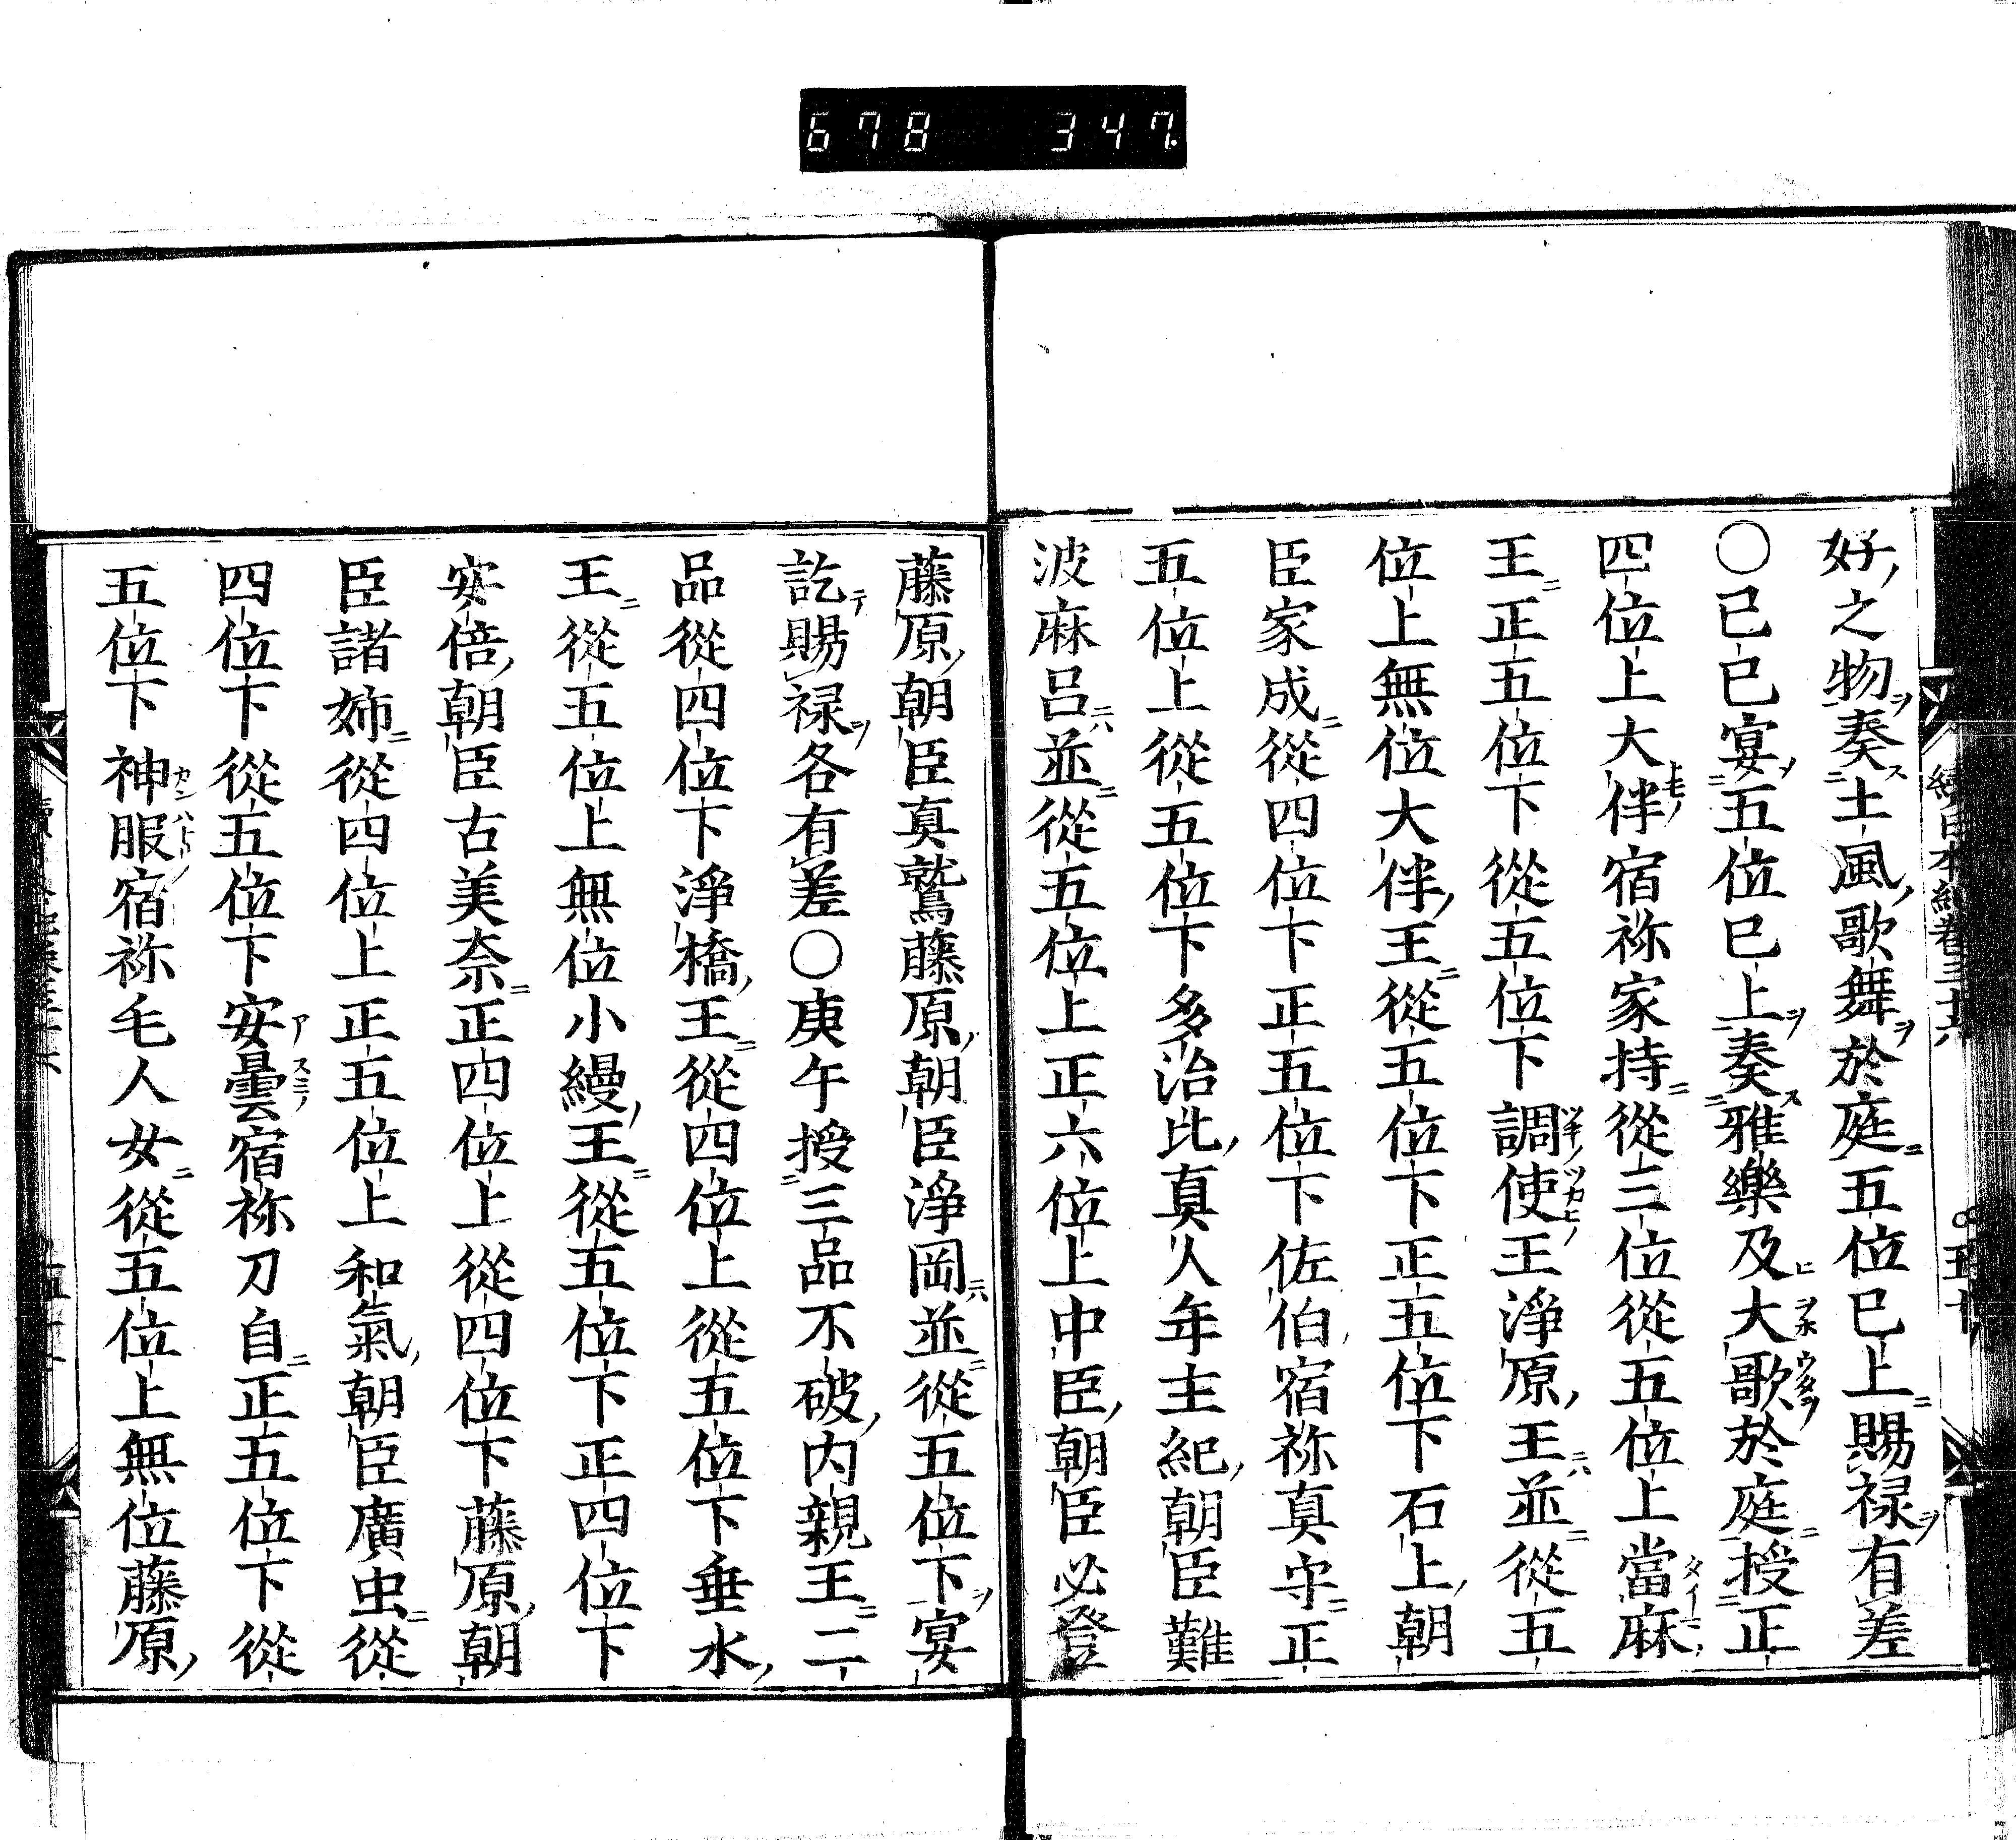 678 347
好之物奏土風歌舞於庭五位已上賜禄有差
〇己巳宴五位已上奏雅樂及大歌於庭授正
四位上大伴宿祢家持從三位從五位上當麻
王正五位下從五位下調使王淨原王並從五
位上無位大伴王從五位下正五位下石上朝
臣家成從四位下正五位下佐伯宿祢真守正
五位上從五位下多治比真人年主紀朝臣難
波麻呂並從五位上正六位上中臣朝臣必登
藤原朝臣真鷲藤原朝臣淨岡並從五位下宴
訖賜禄各有差〇庚午授三品不破内親王二
品從四位下淨橋王從四位上從五位下垂水
王從五位上無位小縵王從五位下正四位下
安倍朝臣古美奈正四位上從四位下藤原朝
臣諸姉從四位上正五位上和氣朝臣廣虫從
四位下從五位下安曇宿祢刀自正五位下從
五位下神服宿祢毛人女從五位上無位藤原